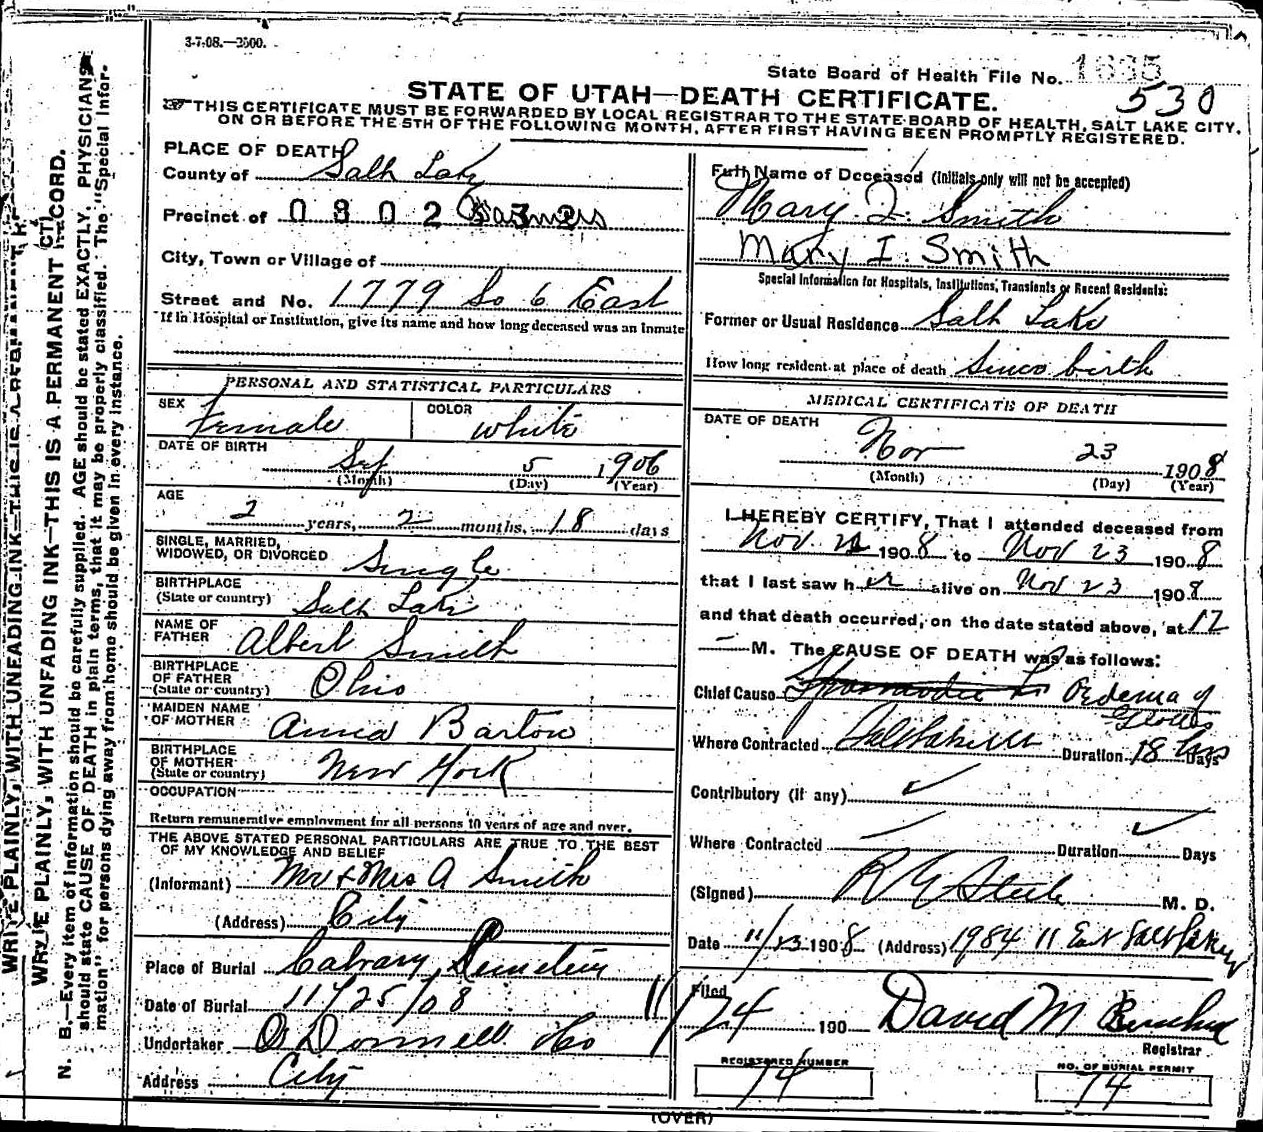 3-7-08.—2500.
State Board of Health File No. 1635
530
STATE OF UTAH—DEATH CERTIFICATE.
THIS CERTIFICATE MUST BE FORWARDED BY LOCAL REGISTRAR TO THE STATE BOARD OF HEALTH, SALT LAKE CITY,
ON OR BEFORE THE 5TH OF THE FOLLOWING MONTH, AFTER FIRST HAVING BEEN PROMPTLY REGISTERED.
WRITE PLAINLY, WITH UNFADING INK—THIS IS A PERMANENT RECORD.
N. B.—Every item of information should be carefully supplied. AGE should be stated EXACTLY. PHYSICIANS
should state CAUSE OF DEATH in plain terms, that it may be properly classified. The "Special Infor-
mation" for persons dying away from home should be given in every instance.
PLACE OF DEATH
County of Salt Lake
Precinct of 0302 Farmers
City, Town or Village of
Street and No. 1779 So 6 East
If in Hospital or Institution, give its name and how long deceased was an Inmate
PERSONAL AND STATISTICAL PARTICULARS
SEX Female COLOR White
DATE OF BIRTH Sep 5 1906
(Month) (Day) (Year)
AGE 2 years, 2 months, 18 days
SINGLE, MARRIED,
WIDOWED, OR DIVORCED Single
BIRTHPLACE
(State or country) Salt Lake
NAME OF
FATHER Albert Smith
BIRTHPLACE
OF FATHER
(State or country) Ohio
MAIDEN NAME
OF MOTHER Anna Barton
BIRTHPLACE
OF MOTHER
(State or country) New York
OCCUPATION
Return remunerative employment for all persons 10 years of age and over.
THE ABOVE STATED PERSONAL PARTICULARS ARE TRUE TO THE BEST
OF MY KNOWLEDGE AND BELIEF
(Informant) Mr & Mrs A Smith
(Address) City
Place of Burial Calvary Cemetery
Date of Burial 11/25/08
Undertaker O Donnell Co
Address City
Full Name of Deceased (Initials only will not be accepted)
Mary I. Smith
Mary I. Smith
Special Information for Hospitals, Institutions, Transients or Recent Residents:
Former or Usual Residence Salt Lake
How long resident at place of death Since birth
MEDICAL CERTIFICATE OF DEATH
DATE OF DEATH Nov 23 1908
(Month) (Day) (Year)
I HEREBY CERTIFY, That I attended deceased from
Nov. 21 1908 to Nov 23 1908
that I last saw her alive on Nov 23 1908
and that death occurred, on the date stated above, at 12
M. The CAUSE OF DEATH was as follows:
Chief Cause Spasmodic Oedema of
Glottis
Where Contracted Salt Lake Duration 18 hrs Days
Contributory (if any)
Where Contracted Duration Days
(Signed) R G Steele M. D.
Date 11/23 1908 (Address) 1984 11 East Salt Lake
Filed 11/24 190 David M
Registrar
REGISTERED NUMBER
74
NO. OF BURIAL PERMIT
74
(OVER)